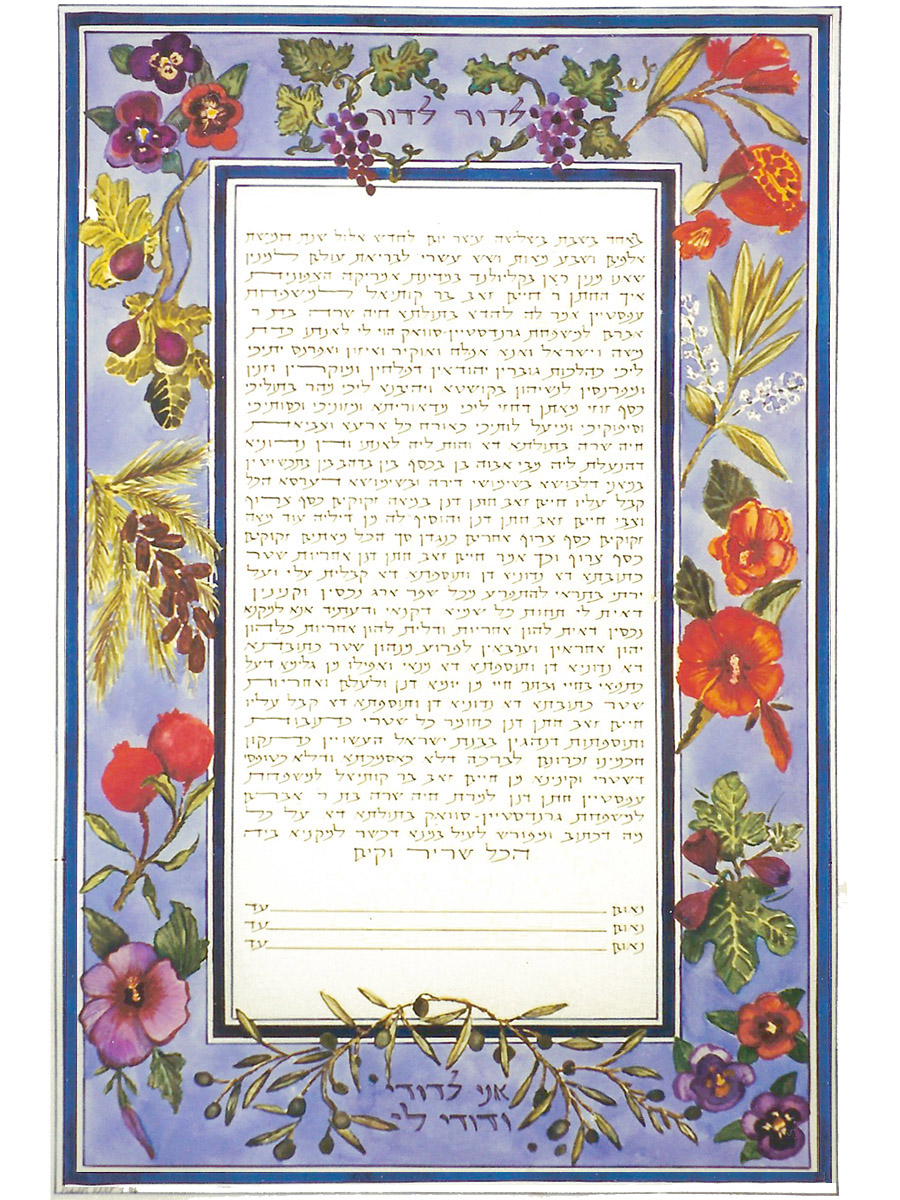 לדור לדור
באחד בשבת בשלשה עשר יום לחדש אלול שנת חמשת
אלפים ושבע מאות ושש עשרי לבריאת עולם למנין
שאנו מנין כאן בקליולנד במדינת אמריקה הצפונית
איך החתן ר חיים זאב בר קותיאל למשפחת
עפסטיין אמר לה להדא בתולתא חיה שרה בת ר
אברם למשפחת גרנדסטיין-סוואק הוי לי לאנתו כדת
משה וישראל ואנא אפלח ואוקיר ואיזון ואפרנס יתיכי
ליכי כהלכות גוברין יהודאין דפלחין ומוקרין וזנין
ומפרנסין לנשיהון בקושטא ויהיבנא ליכי מהר בתוליכי
כסף זוזי מאתן דחזי ליכי מדאוריתא ומזוניכי וכסותיכי
וסיפוקיכי ומיעל לותיכי כאורח כל ארעא וצביאת
חיה שרה בתולתא דא והות ליה לאנתו ודן נדוניא
דהנעלת ליה מבי אבוה בן בכסף בין בזהב בין בתכשיטין
במאני דלבושא בשימושי דירה ובשימושא דערסא הכל
קבל עליו חיים זאב חתן דנן במאה זקוקים כסף צרוף
וצבי חיים זאב חתן דנן והוסיף לה מן דיליה עוד מאה
זקוקים כסף צרוף אחרים כנגדן סך הכל מאתים זקוקים
כסף צרוף וכך אמר חיים זאב חתן דנן אחריות שטר
כתובתא דא נדוניא דן ותוספתא דא קבלית עלי ועל
ירתי בתראי להתפרע מכל שפר ארג נכסין וקנינין
דאית לי תחות כל שמיא דקנאי ודעתיד אנא למקנא
נכסין דאית להון אחריות ודלית להון אחריות כלהון
יהון אחראין וערבאין לפרוע מנהון שטר כתובתא
דא נדוניא דן ותוספתא דא מנאי ואפילו מן גלימא דעל
כתפאי בחיי ובתר חיי מן יומא דנן ולעלם ואחריות
שטר כתובתא דא נדוניא דן ותוספתא דא קבל עליו
חיים זאב חתן דנן כחומר כל שטרי כתובות
ותוספתות דנהגין בבנת ישראל העשויין כתקון
חכמינו זכרונם לברכה דלא כאסמכתא ודלא כטופסי
דשטרי וקנינא מן חיים זאב בר קותיאל למשפחת
עפסטיין חתן דנן למרת חיה שרה בת ר אברם
למשפחת גרנדסטיין-סוואק בתולתא דא על כל
מה דכתוב ומפורש לעיל במנא דכשר למקניא ביה
הכל שריר וקים
נאום עד
נאום עד
נאום עד
אני לדודי
ודודי לי